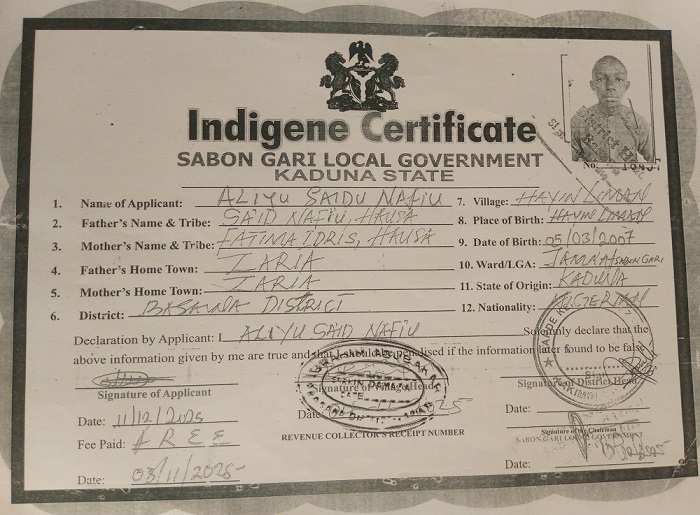 Indigene Certificate
SABON GARI LOCAL GOVERNMENT
KADUNA STATE
No.
1. Name of Applicant: ALIYU SAIDU NAFIU
2. Father's Name & Tribe: SAID NAFIU, HAUSA
3. Mother's Name & Tribe: FATIMA IDRIS, HAUSA
4. Father's Home Town: ZARIA
5. Mother's Home Town: ZARIA
6. District: BASAWA DISTRICT
7. Village: HAYIN LIMAN
8. Place of Birth: HAYIN LIMAN
9. Date of Birth: 05/03/2007
10. Ward/LGA: JAMA'A/SABON GARI
11. State of Origin: KADUNA
12. Nationality: NIGERIAN
Declaration by Applicant: I ALIYU SAID NAFIU Solemnly declare that the
above information given by me are true and that I should be penalised if the information later found to be false.
Signature of Applicant
Signature of Village Head
Signature of District Head
Date: 11/12/2025
Date:
Date:
Fee Paid: FREE
REVENUE COLLECTOR'S RECEIPT NUMBER
Signature of the Chairman
SABON GARI LOCAL GOVERNMENT
Date: 03/11/2025
Date: